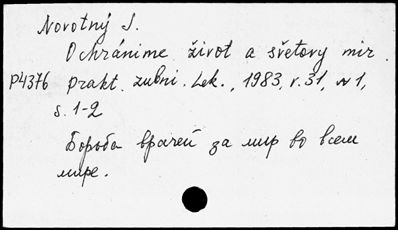 Novotný J.
Ochránime život a světovy mir.
P4376 prakt. zubni. Lek., 1983, r.31, N1,
s. 1-2
Борьба врачей за мир во всем
мире.